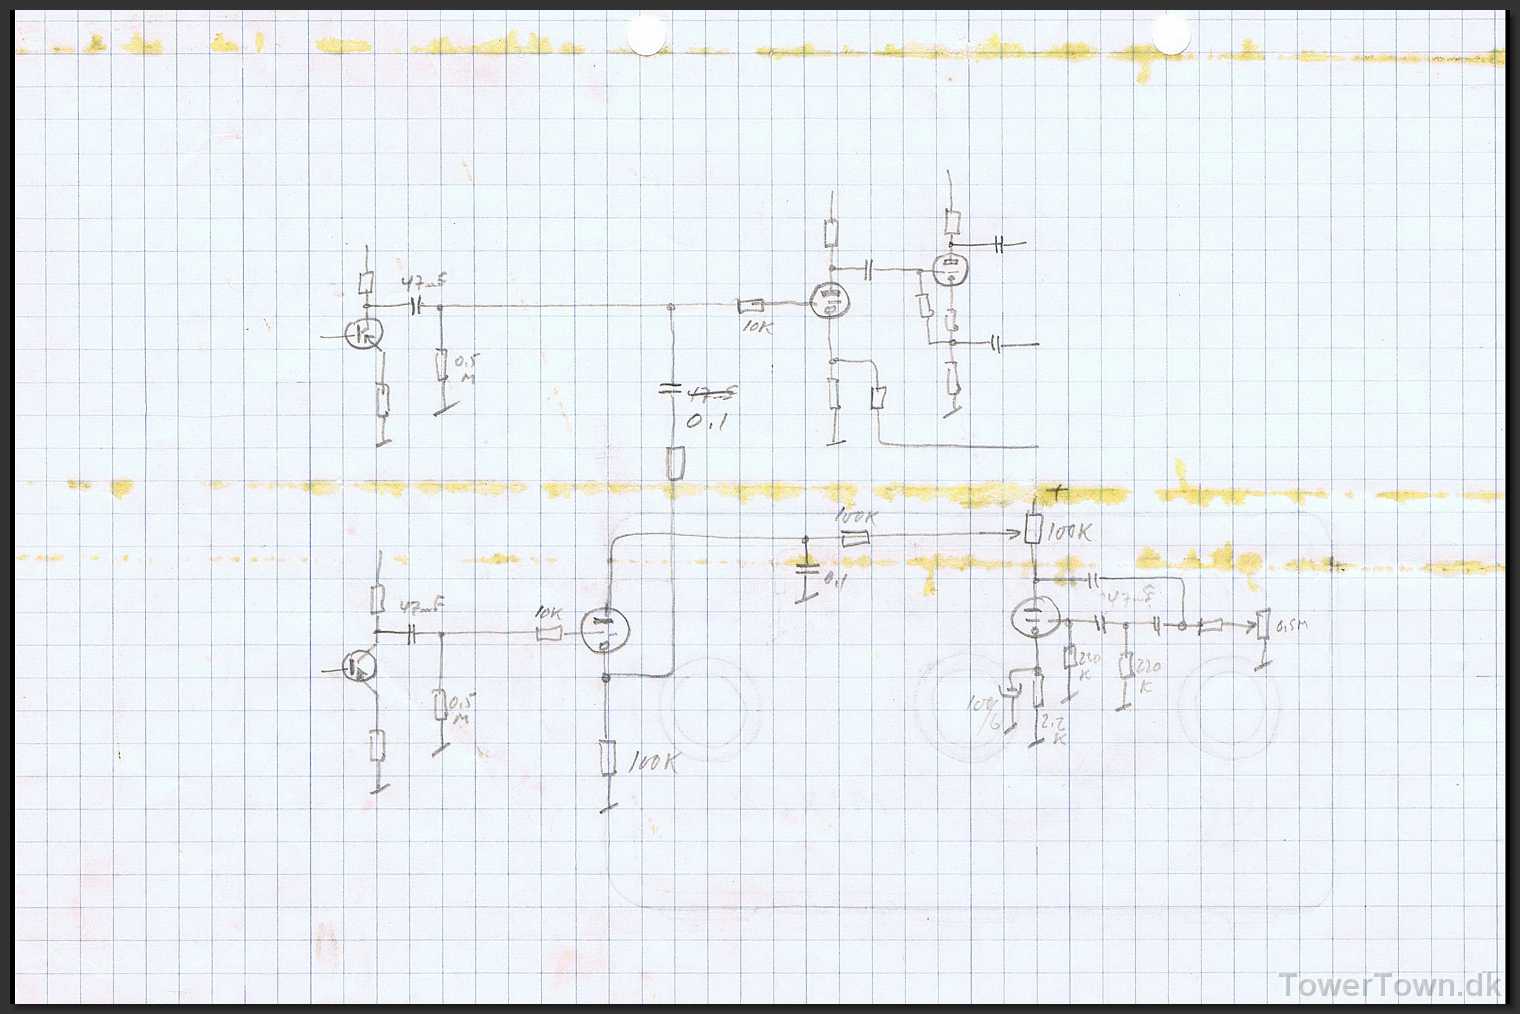 47nF
10K
0.5
M
47nF
0,1
+
100K
100K
0,1
47nF
10K
47nF
0.5M
220
K
220
K
0,5
M
100/6
2,2
K
100K
TowerTown.dk